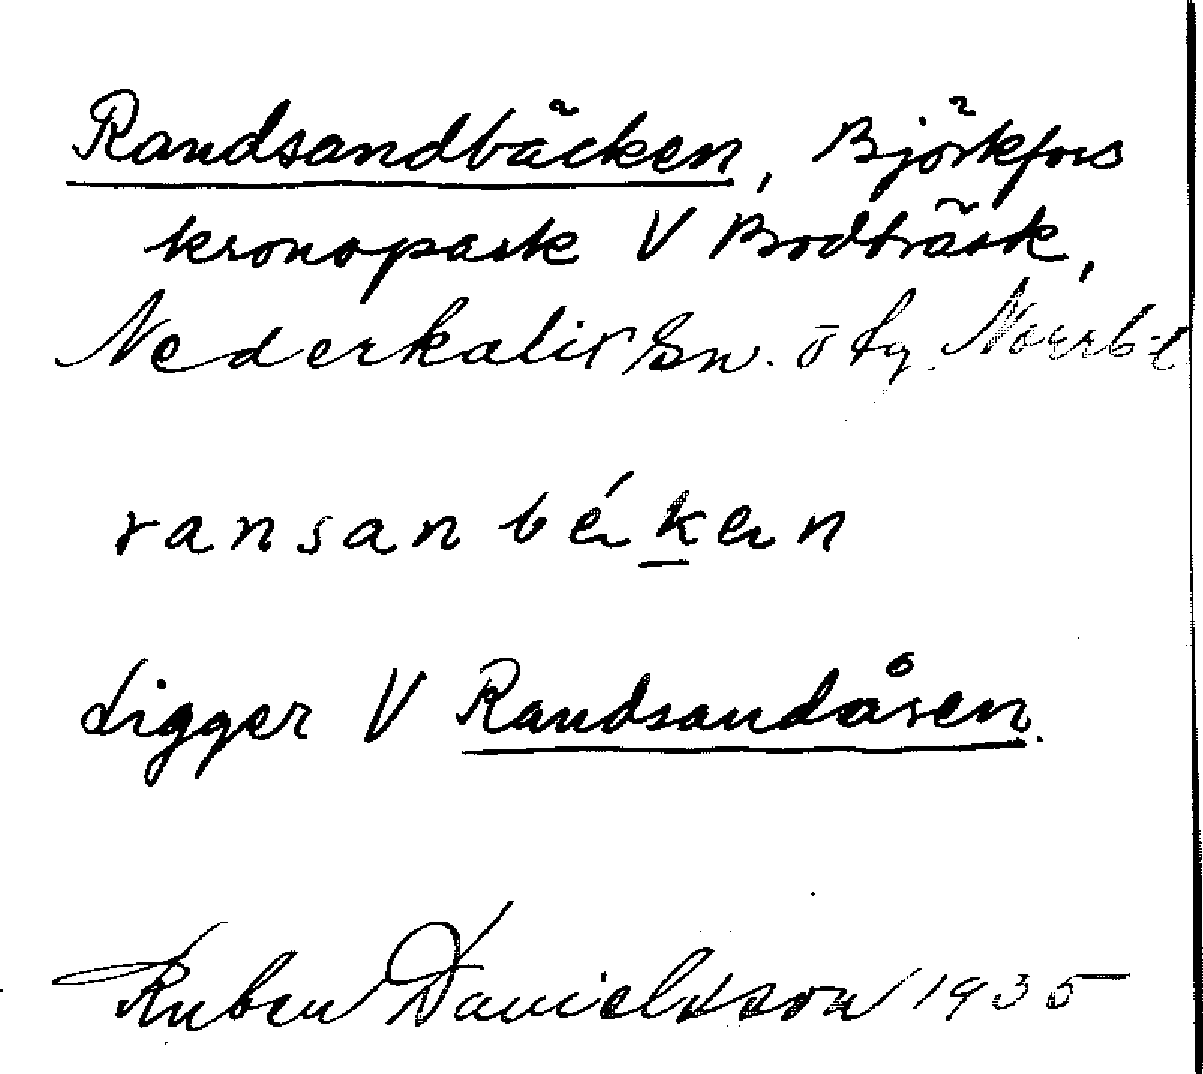 Randsandbäcken, Björkfors
kronopark V Brodträsk,
Nederkalix sn. ö fg. Norrb-l
ransanbéken
Ligger V Randsandåsen.
Ruben Danielsson 1935